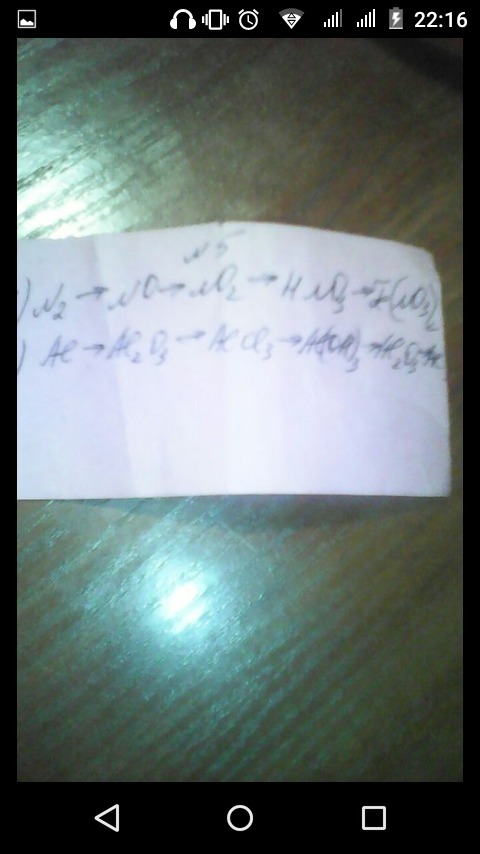 22:16
N5
) N₂ → NO → NO₂ → HNO₃ → (NO₃)₂
) Al → Al₂O₃ → AlCl₃ → Al(OH)₃ → Al₂O₃ → Al